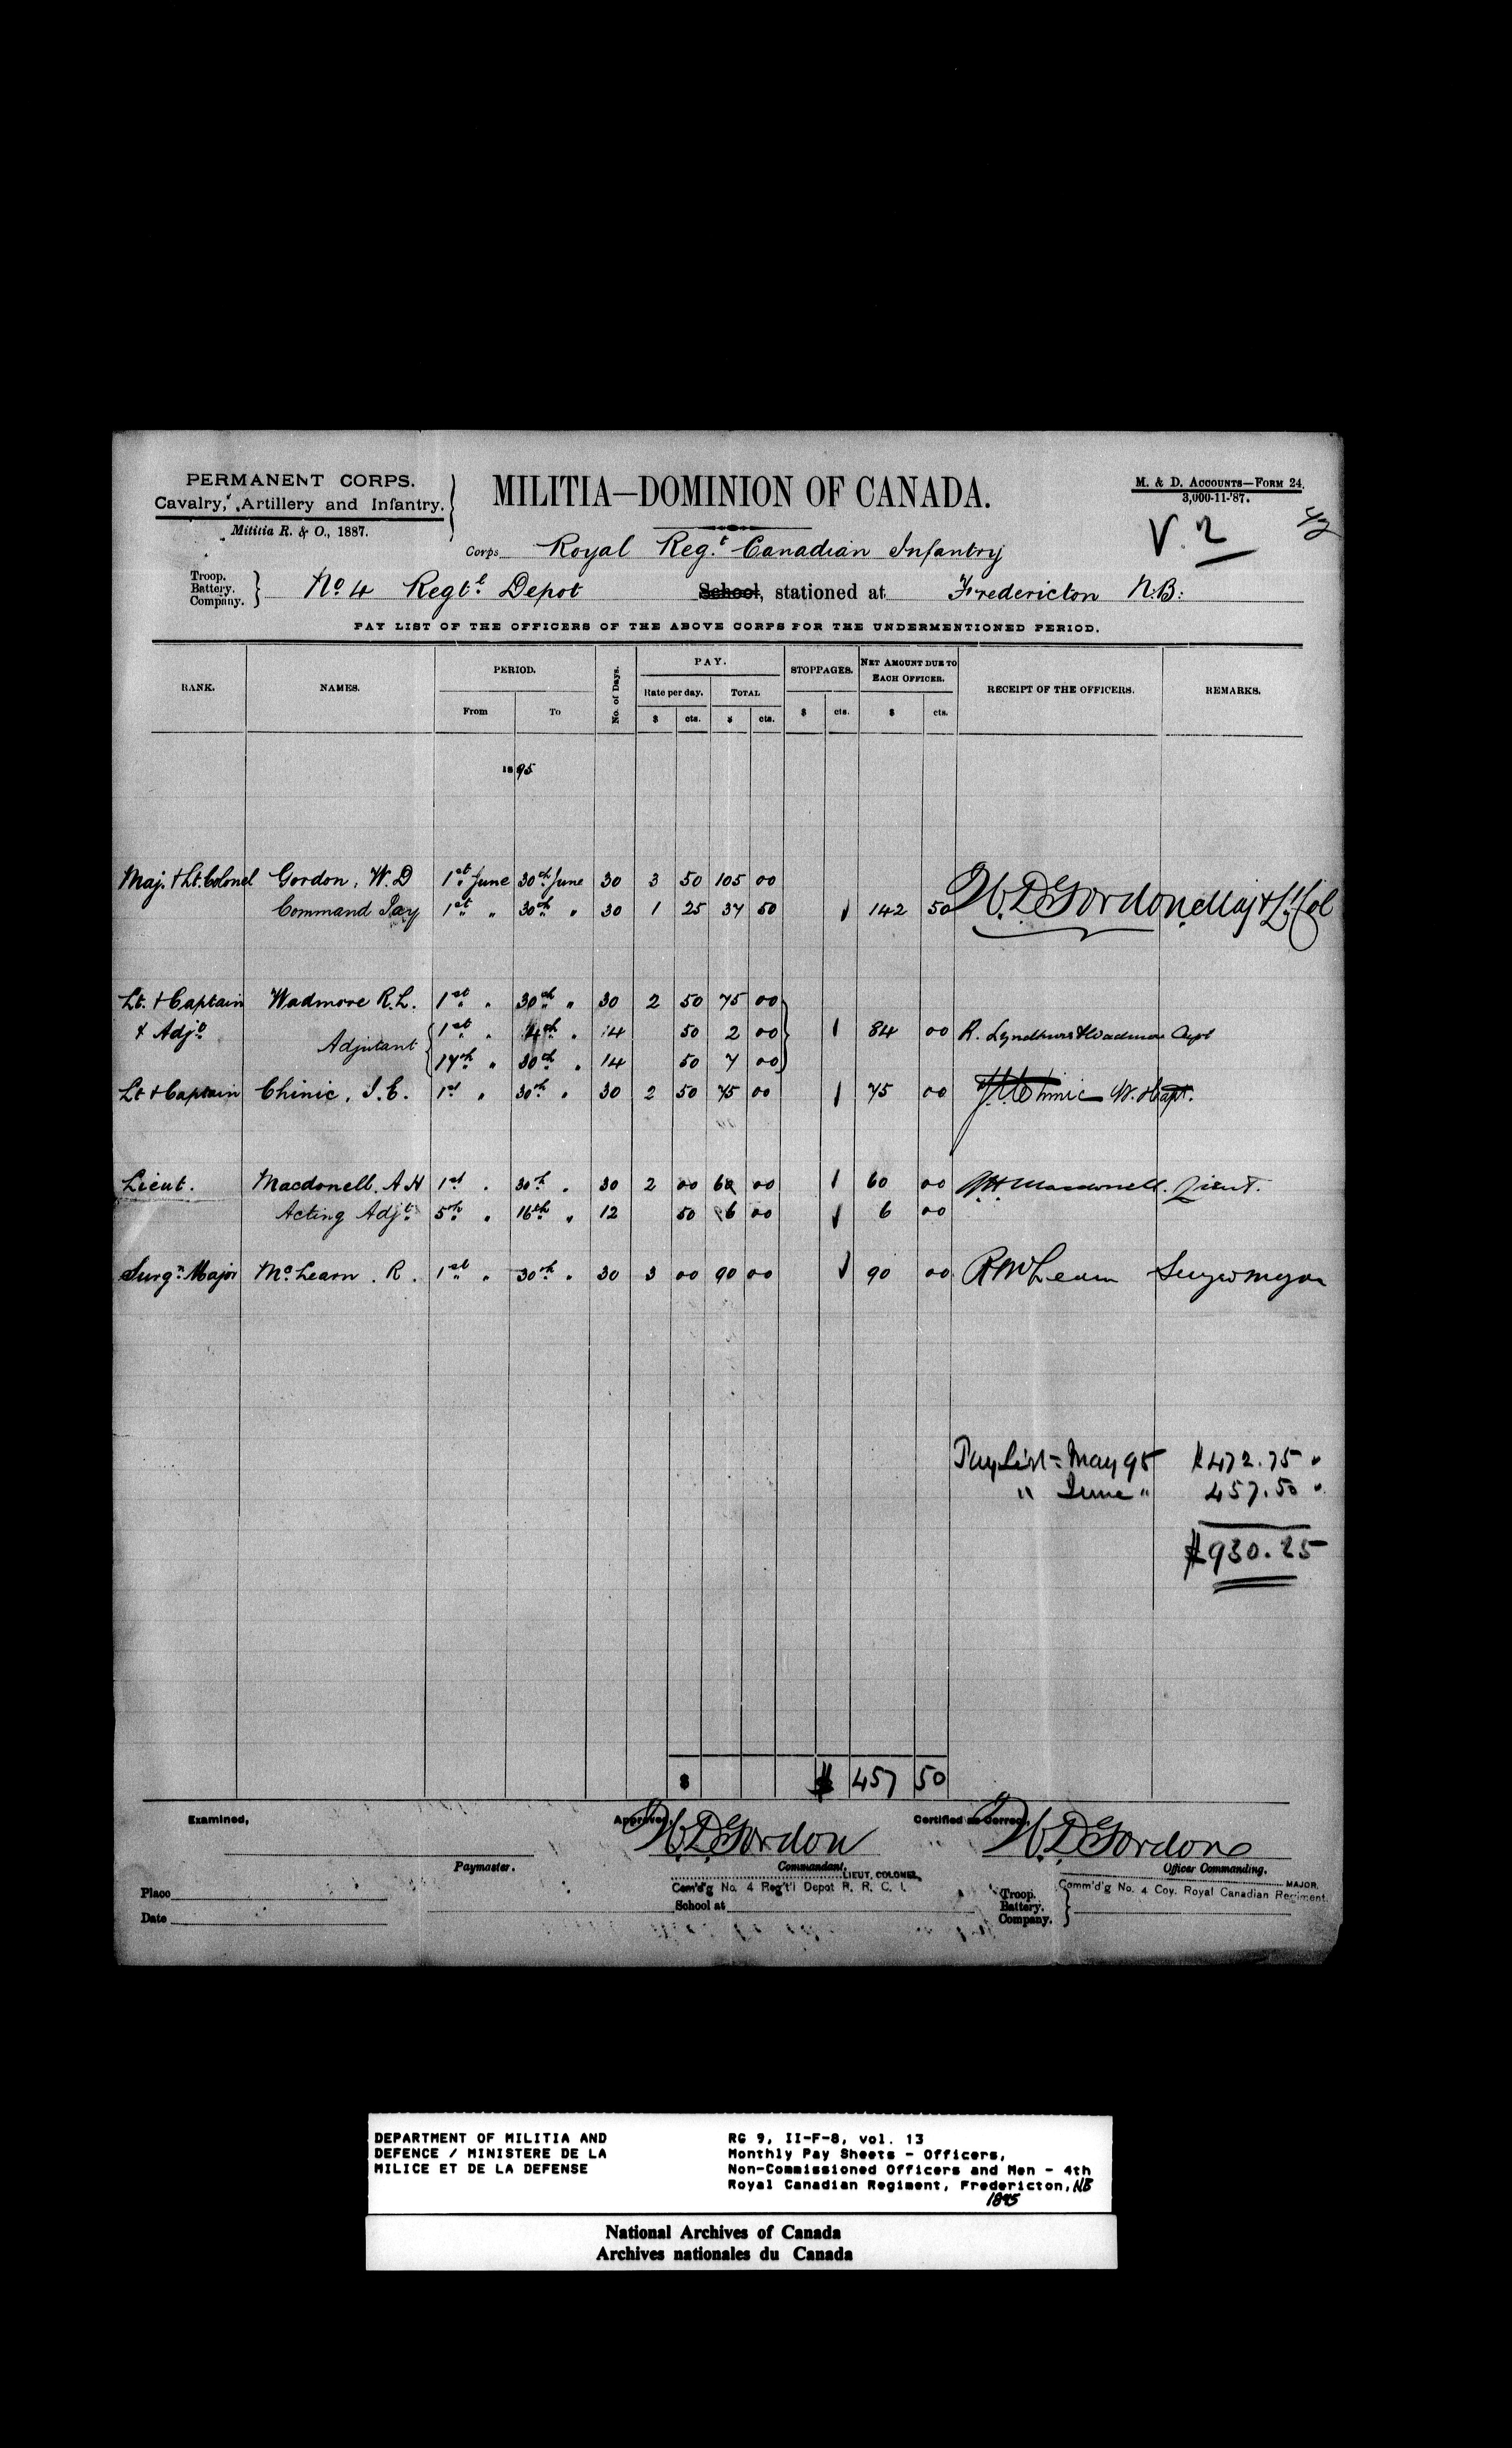 PERMANENT CORPS.
Cavalry, Artillery and Infantry.
Militia R. & O., 1887.
MILITIA—DOMINION OF CANADA.
M. & D. Accounts—Form 24.
3,000-11-'87.
V. 2
Corps Royal Reg.t Canadian Infantry
Troop.
Battery.
Company.
No. 4 Regtl. Depot School, stationed at Fredericton N.B:
PAY LIST OF THE OFFICERS OF THE ABOVE CORPS FOR THE UNDERMENTIONED PERIOD.
RANK. NAMES. PERIOD. No. of Days. PAY. STOPPAGES. NET AMOUNT DUE TO EACH OFFICER. RECEIPT OF THE OFFICERS. REMARKS.
From To Rate per day. TOTAL
$ cts. $ cts. $ cts. $ cts.
1895
Maj. & Lt. Colonel Gordon, W.D 1st June 30th June 30 3 50 105 00
Command Pay 1st " 30th " 30 1 25 37 50 142 50 W.D Gordon Maj & Lt Col
Lt. & Captain Wadmore R.L. 1st " 30th " 30 2 50 75 00
& Adjt. Adjutant 1st " 4th " 14 50 2 00 84 00 R. Lyndhurst Wadmore Capt
17th " 30th " 14 50 7 00
Lt & Captain Chinic, J.C. 1st " 30th " 30 2 50 75 00 75 00 Chinic Lt. & Capt.
Lieut. Macdonell, A H 1st " 30th " 30 2 00 60 00 60 00 AH Macdonell. Lieut.
Acting Adjt. 5th " 16th " 12 50 6 00 6 00
Surgn. Major McLearn. R. 1st " 30th " 30 3 00 90 00 90 00 R McLearn Surgeon Major
Pay List = May 95 $472.75 "
" June " 457.50 "
$930.25
$ $ 457 50
Examined, Approved, W.D Gordon Certified as Correct, W.D Gordon
Paymaster. Commandant, LIEUT. COLONEL, Officer Commanding. MAJOR.
Place Com'd'g No. 4 Reg't'l Depot R. R. C. I. Comm'd'g No. 4 Coy. Royal Canadian Regiment.
School at
Troop.
Battery.
Company.
Date
DEPARTMENT OF MILITIA AND
DEFENCE / MINISTERE DE LA
MILICE ET DE LA DEFENSE
RG 9, II-F-8, vol. 13
Monthly Pay Sheets - Officers,
Non-Commissioned Officers and Men - 4th
Royal Canadian Regiment, Fredericton, NB
1895
National Archives of Canada
Archives nationales du Canada